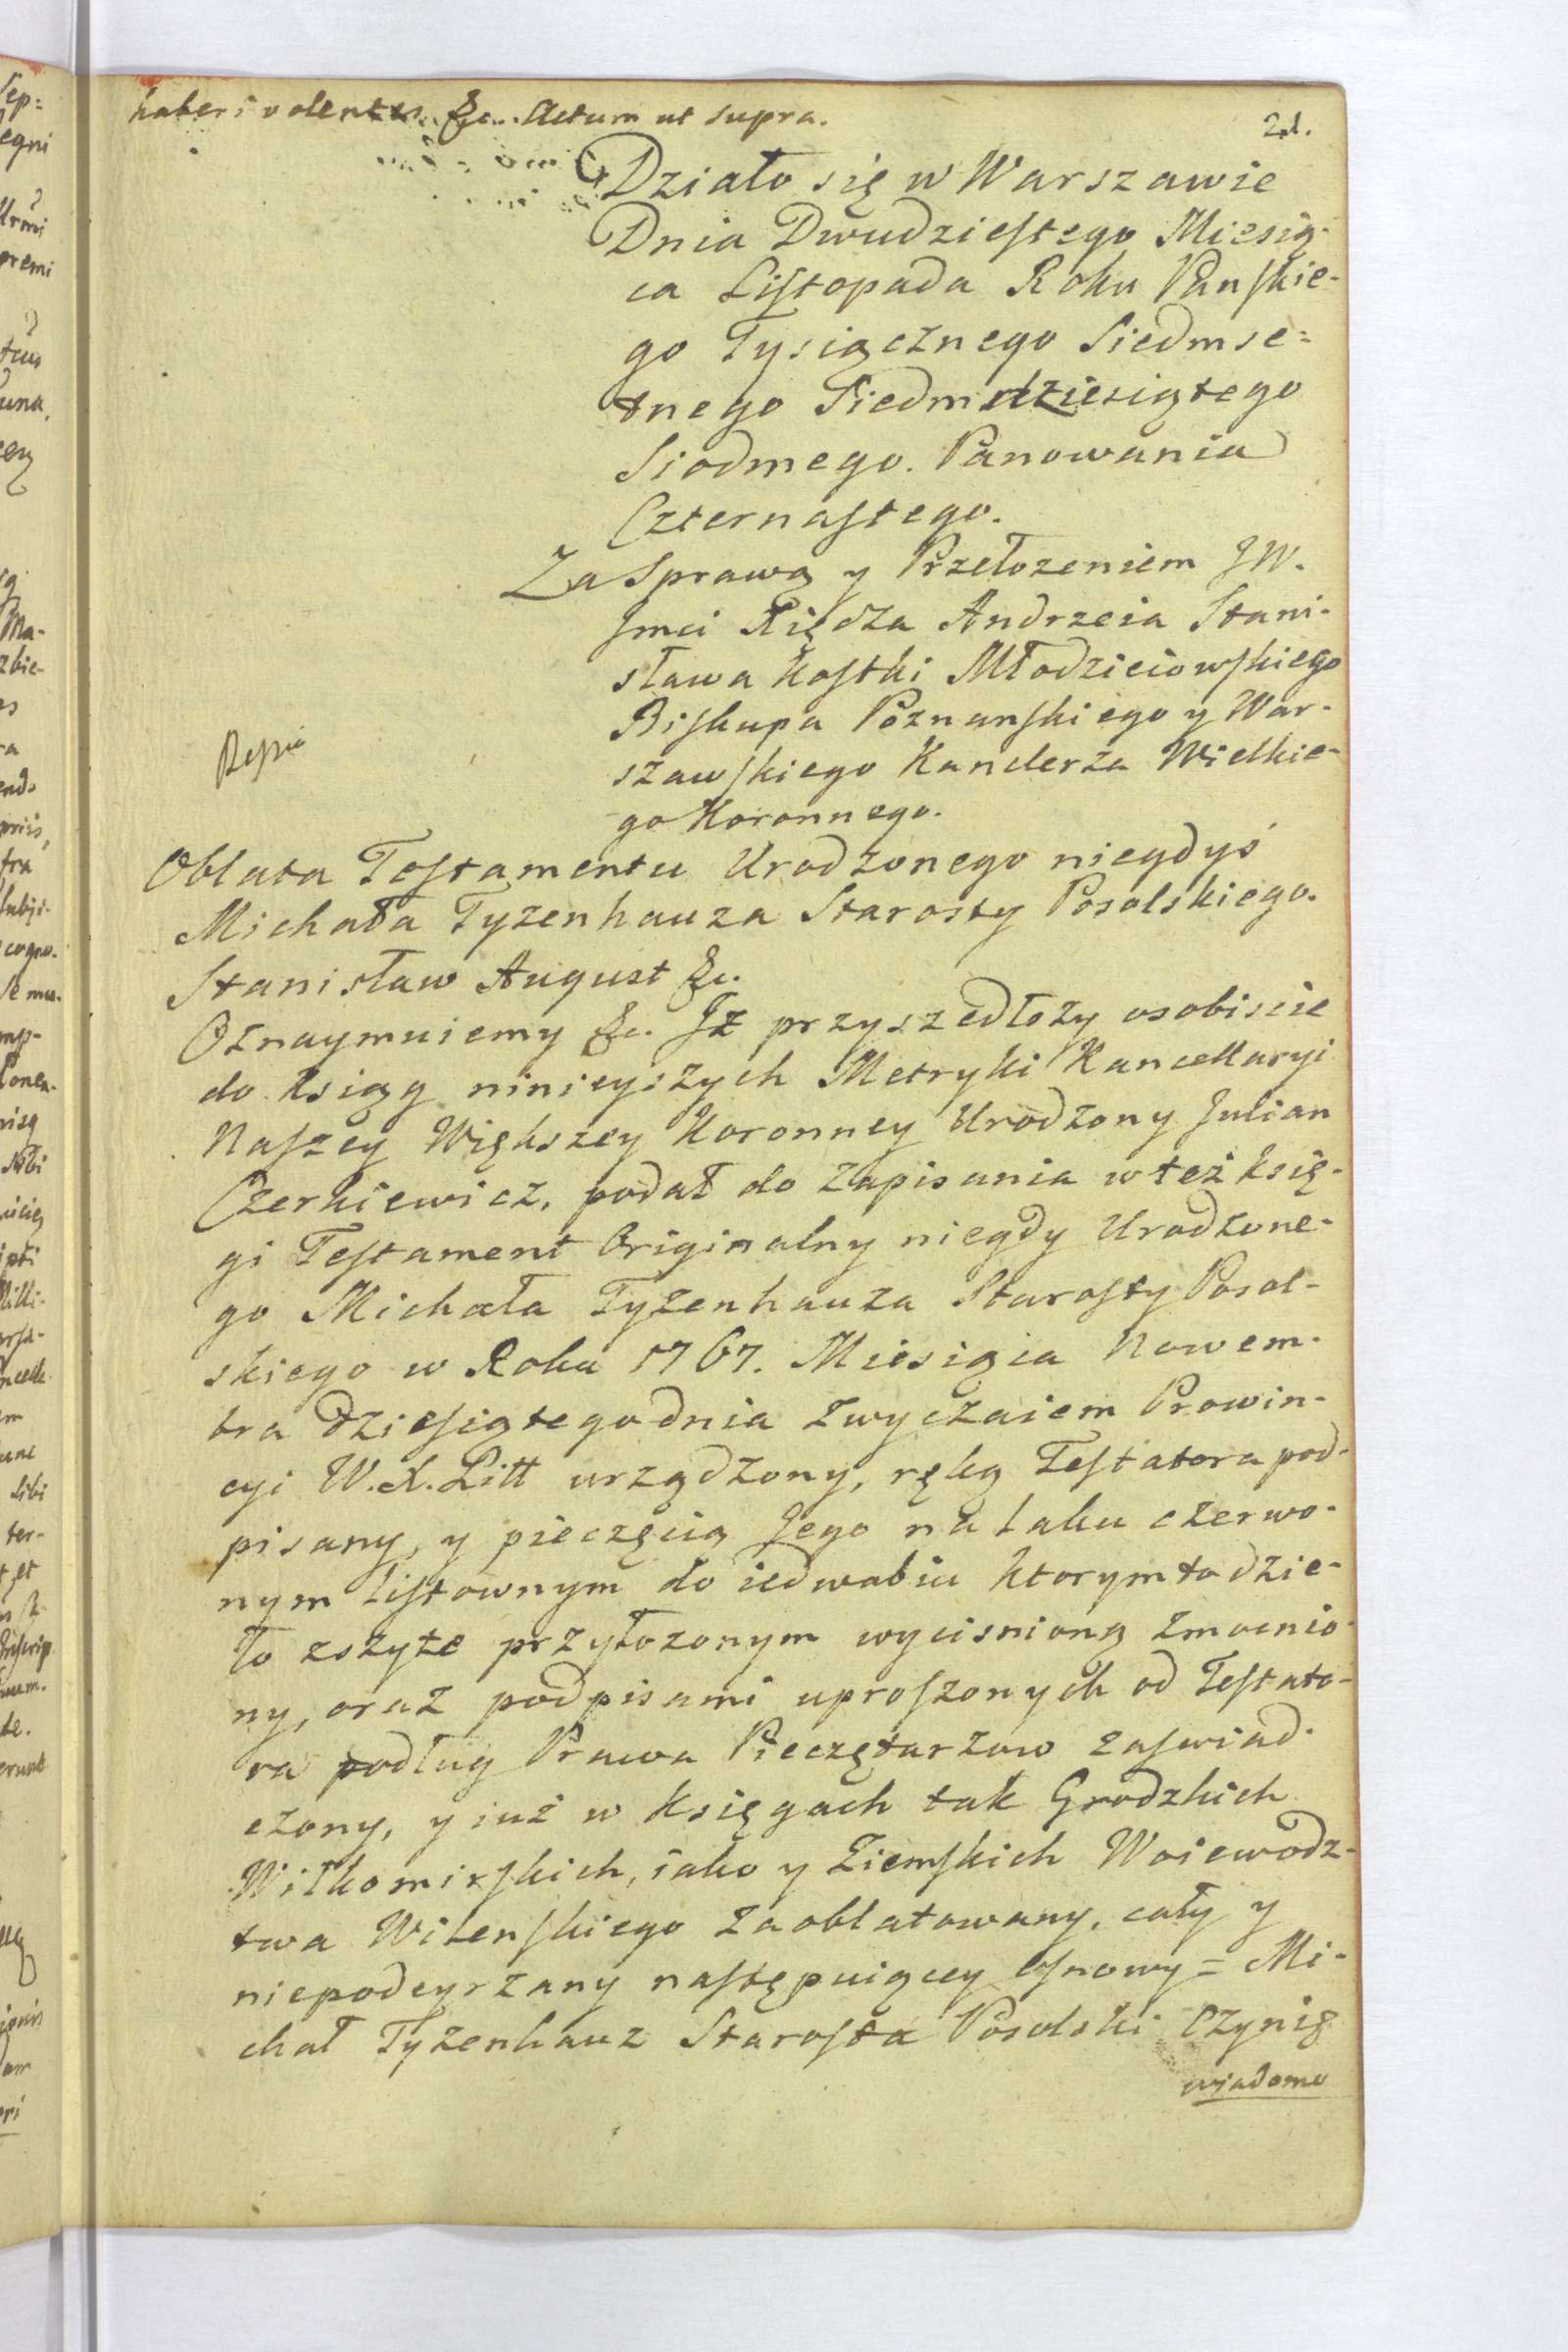 haberi volentes &c. Actum ut supra.
21.
Działo się w Warszawie
Dnia Dwudziestego Miesią-
ca Listopada Roku Panskie-
go Tysiącznego Siedmse=
tnego Siedmdziesiątego
Siodmego. Panowania
Czternastego.
Za Sprawą y Przełozeniem JW.
Jmci Xiędza Andrzeia Stani-
sława Kostki Młodzieiowskiego
Biskupa Poznanskiego y War-
szawskiego Kanclerza Wielkie-
go Koronnego.
Oblata Testamentu Urodzonego niegdyś
Michała Tyzenhauza Starosty Posolskiego.
Stanisław August &c.
Oznaymuiemy &c. Jż przyszedłszy osobiscie
do Xsiąg ninieyszych Metryki Kancellaryi
Naszey Większey Koronney Urodzony Julian
Czerkiewicz, podał do zapisania w też księ-
gi Testament Originalny niegdy Urodzone-
go Michała Tyzenhauza Starosty Posol-
skiego w Roku 1767. Miesiąia Nowem-
bra dziesiątego dnia zwyczaiem Prowin-
cyi W. X. Litt urządzony, ręką Testatora pod-
pisany, y pieczęcią Jego na laku czerwo-
nym listownym do iedwabiu ktorym to dzie-
ło zszyte przyłozonym wycisnioną zmocnio-
ny, oraz podpisami uproszonych od Testato-
ra podług Prawa Pieczętarzow zaswiad-
czony, y iuż w Księgach tak Grodzkich
Wiłkomirskich, iako y Ziemskich Woiewodz-
twa Wilenskiego zaoblatowany, cały y
niepodeyrzany następuiącey osnowy = Mi-
chał Tyzenhauz Starosta Posolski Czynię
wiadomo